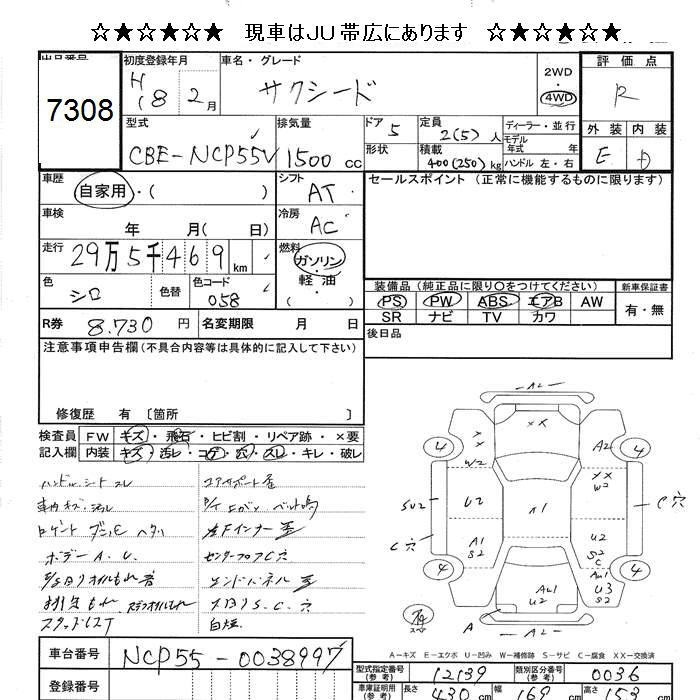 ☆★☆★☆★☆ 現車はJU帯広にあります ☆★☆★☆★☆
出品番号 初度登録年月 車名・グレード 2WD 評価点
7308 H18 2月 サクシード 4WD R
型式 排気量 ドア 5 定員 2(5)人 ディーラー・並行 外装 内装
CBE-NCP55V 1500 cc 形状 積載 400(250)kg モデル年式 年式 ハンドル 左・右 E D
車歴 自家用・( ) シフト AT セールスポイント (正常に機能するものに限ります)
車検 年 月( 日) 冷房 AC
走行 29万5千469 km 燃料 ガソリン・軽油
色 シロ 色替 色コード 058 装備品 (純正品に限り○をつけてください) 新車保証書
PS PW ABS エアB AW 有・無
R券 8.730 円 名変期限 月 日 SR ナビ TV カワ
注意事項申告欄 (不具合内容等は具体的に記入して下さい) 後日品
修復歴 有 〔箇所 〕
検査員 FW キズ・飛石・ヒビ割・リペア跡・×要
記入欄 内装 キズ・汚レ・コゲ・穴・スレ・キレ・破レ
ハンドル シート スレ コアサポート
車内キズ・汚レ エバン ベルト鳴
左Fインナー
ボデーA.U. センターフロアC穴
オイルもれ エンドパネル
排気もれ S.C.穴
スタッドレス 白煙
A2
XX
4 4
A2
W2 XX W2
SU2 U2 A1 C穴
C穴 A1 S2 U2 S2 C
4 AU1 4
AU1 U2 U3 S2
A A2
A-キズ E-エクボ U-凹み W-補修跡 S-サビ C-腐食 XX-交換済
車台番号 NCP55-0038997
型式指定番号 (参考) 12139 類別区分番号 (参考) 0036
登録番号 車庫証明用 (参考) 長さ 430 cm 幅 169 cm 高さ 153 cm